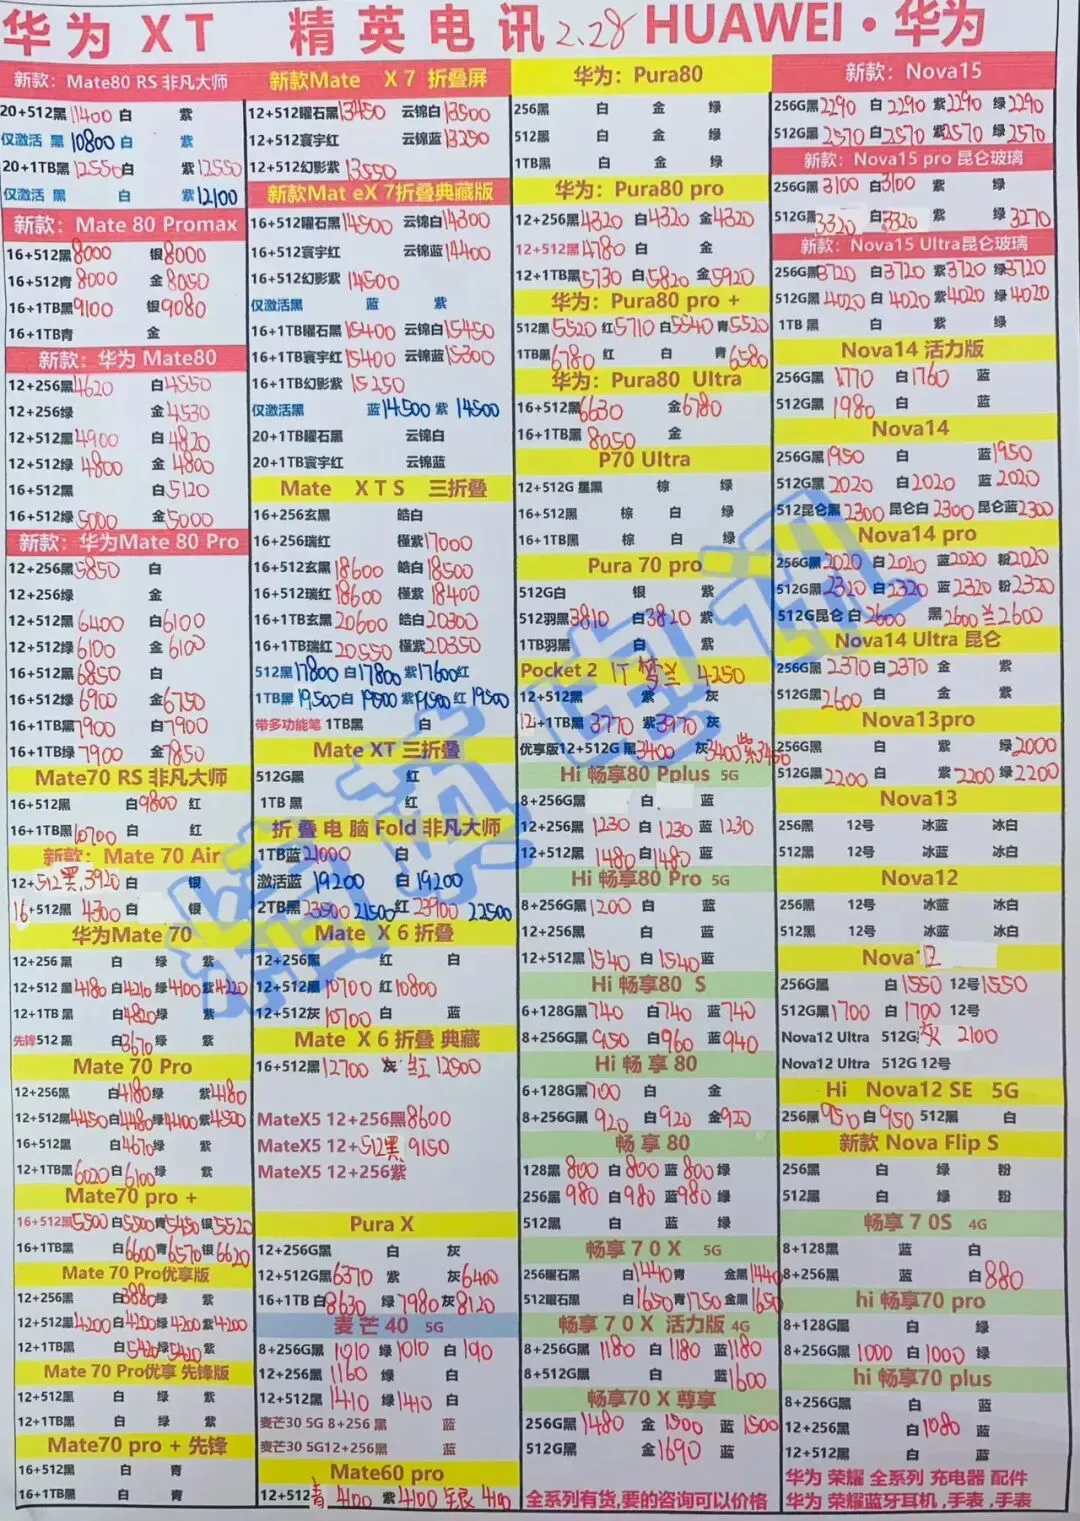 华为 XT 精英电讯 2.28 HUAWEI·华为
新款：Mate80 RS 非凡大师
20+512黑 11400 白 紫
仅激活 黑 10800 白 紫
20+1TB黑 12550 白 紫 12550
仅激活 黑 白 紫 12100
新款：Mate 80 Promax
16+512黑 8000 银 8000
16+512青 8000 金 8050
16+1TB黑 9100 银 9080
16+1TB青 金
新款：华为 Mate80
12+256黑 4620 白 4550
12+256绿 金 4530
12+512黑 4900 白 4820
12+512绿 4800 金 4800
16+512黑 白 5120
16+512绿 5000 金 5000
新款：华为Mate 80 Pro
12+256黑 5850 白
12+256绿 金
12+512黑 6400 白 6100
12+512绿 6100 金 6100
16+512黑 6850 白
16+512绿 6900 金 6750
16+1TB黑 7900 白 7900
16+1TB绿 7900 金 7850
Mate70 RS 非凡大师
16+512黑 白 9800 红
16+1TB黑 10700 白 红
新款：Mate 70 Air
12+512黑 3920 白 银
16+512黑 4300 白 银
华为Mate 70
12+256 黑 白 绿 紫
12+512 黑 4180 白 4210 绿 4100 紫 4220
12+1TB 黑 白 4820 绿 紫
先锋512 黑 白 3670 绿 紫
Mate 70 Pro
12+256黑 白 4180 绿 紫 4180
12+512黑 4450 白 4480 绿 4400 紫 4500
16+512黑 白 4670 绿 紫
12+1TB黑 6020 白 6100 绿 紫
Mate70 pro +
16+512黑 5500 白 5500 青 5450 银 5520
16+1TB黑 白 6600 青 6570 银 6620
Mate 70 Pro优享版
12+256黑 白 3880 绿 紫
12+512黑 4200 白 4200 绿 4200 紫 4200
12+1TB黑 白 5420 绿 5420 紫
Mate 70 Pro优享 先锋版
12+512黑 白 绿 紫
12+1TB黑 白 绿 紫
Mate70 pro + 先锋
16+512黑 白 青
16+1TB黑 白 青
新款Mate X 7 折叠屏
12+512曜石黑 13450 云锦白 13500
12+512寰宇红 云锦蓝 13250
12+512幻影紫 13550
新款Mat eX 7折叠典藏版
16+512曜石黑 14500 云锦白 14300
16+512寰宇红 云锦蓝 14400
16+512幻影紫 14500
仅激活黑 蓝 紫
16+1TB曜石黑 15400 云锦白 15450
16+1TB寰宇红 15400 云锦蓝 15300
16+1TB幻影紫 15250
仅激活黑 蓝 14500 紫 14500
20+1TB曜石黑 云锦白
20+1TB寰宇红 云锦蓝
Mate X T S 三折叠
16+256玄黑 皓白
16+256瑞红 槿紫 17000
16+512玄黑 18600 皓白 18500
16+512瑞红 18600 槿紫 18400
16+1TB玄黑 20600 皓白 20300
16+1TB瑞红 20550 槿紫 20350
512黑 17800 白 17800 紫 17600 红
1TB黑 19500 白 19500 紫 19500 红 19500
带多功能笔 1TB黑 白
Mate XT 三折叠
512G黑 红
1TB 黑 红
折叠电脑Fold 非凡大师
1TB蓝 21000 白
激活蓝 19200 白 19200
2TB黑 23500 21500 红 23900 22500
Mate X 6 折叠
12+256黑 红 白
12+512黑 10700 红 10800
12+512灰 10700 白 蓝
Mate X 6 折叠 典藏
16+512黑 12700 灰 红 12900
MateX5 12+256黑 8600
MateX5 12+512黑 9150
MateX5 12+256紫
Pura X
12+256G黑 白 灰
12+512G黑 6370 紫 灰 6400
16+1TB 白 8630 绿 7980 灰 8120
麦芒 40 5G
8+256G黑 1010 绿 1010 白 190
12+256黑 1160 绿 白
12+512黑 1410 绿 1410 白
麦芒30 5G 8+256 黑 蓝
麦芒30 5G12+256黑 蓝
Mate60 pro
12+512青 4100 紫 4100 银 4100
华为：Pura80
256黑 白 金 绿
512黑 白 金 绿
1TB黑 白 金 绿
华为：Pura80 pro
12+256黑 4320 白 4320 金 4320
12+512黑 4780 白 金
12+1TB黑 5730 白 5820 金 5920
华为：Pura80 pro +
512黑 5520 红 5710 白 5540 青 5520
1TB黑 6780 红 白 青 6580
华为：Pura80 Ultra
16+512黑 6630 金 6780
16+1TB黑 8050 金
P70 Ultra
12+512G 星黑 棕 绿
16+512黑 棕 白 绿
16+1TB黑 棕 白 绿
Pura 70 pro
512G白 银 紫
512羽黑 3810 白 3820 紫
1TB羽黑 白 紫
Pocket 2 1T 梦兰 4250
12+512黑 紫 灰
12+1TB黑 3770 紫 3970 灰
优享版12+512G 黑 3400 灰 3400 紫 3450
Hi 畅享80 Pplus 5G
8+256G黑 白 蓝
12+256黑 1230 白 1230 蓝 1230
12+512黑 1480 白 1480 蓝
Hi 畅享80 Pro 5G
8+256G黑 1200 白 蓝
12+256黑 白 蓝
12+512黑 1540 白 1540 蓝
Hi 畅享80 S
6+128G黑 740 白 740 蓝 740
8+256G黑 950 白 960 蓝 940
Hi 畅 享 80
6+128G黑 700 白 金
8+256G黑 920 白 920 金 920
畅 享 80
128黑 800 白 800 蓝 800 绿
256黑 980 白 980 蓝 980 绿
512黑 白 蓝 绿
畅享 7 0 X 5G
256曜石黑 白 1440 青 金黑 1440
512曜石黑 白 1650 青 1750 金黑 1650
畅享 7 0 X 活力版 4G
8+256G黑 1180 白 1180 蓝 1180
8+512G黑 白 蓝 1600
畅享70 X 尊享
256G黑 1480 金 1500 蓝 1500
512G黑 金 1690 蓝
全系列有货,要的咨询可以价格
新款：Nova15
256G黑 2290 白 2290 紫 2290 绿 2290
512G黑 2570 白 2570 紫 2570 绿 2570
新款：Nova15 pro 昆仑玻璃
256G黑 3100 白 3100 紫 绿
512G黑 3320 白 3320 紫 绿 3270
新款：Nova15 Ultra昆仑玻璃
256G黑 3720 白 3720 紫 3720 绿 3720
512G黑 4020 白 4020 紫 4020 绿 4020
1TB 黑 白 紫 绿
Nova14 活力版
256G黑 1770 白 1760 蓝
512G黑 1980 白 蓝
Nova14
256G黑 1950 白 蓝 1950
512G黑 2020 白 2020 蓝 2020
512昆仑黑 2300 昆仑白 2300 昆仑蓝 2300
Nova14 pro
256G黑 2020 白 2020 蓝 2020 粉 2020
512G黑 2320 白 2320 蓝 2320 粉 2320
512G昆仑 白 2600 黑 2600 兰 2600
Nova14 Ultra 昆仑
256G黑 2370 白 2370 金 紫
512G黑 2600 白 金 紫
Nova13pro
256G黑 白 紫 绿 2000
512G黑 2200 白 紫 2200 绿 2200
Nova13
256黑 12号 冰蓝 冰白
512黑 12号 冰蓝 冰白
Nova12
256黑 12号 冰蓝 冰白
512黑 12号 冰蓝 冰白
Nova12
256G黑 白 1550 12号 1550
512G黑 1700 白 1700 12号
Nova12 Ultra 512G灰 2100
Nova12 Ultra 512G 12号
Hi Nova12 SE 5G
256黑 950 白 950 512黑 白
新款 Nova Flip S
256黑 白 绿 粉
512黑 白 绿 粉
畅享 7 0S 4G
8+128黑 蓝 白
8+256黑 蓝 白 880
hi 畅享70 pro
8+128G黑 白 绿
8+256G黑 1000 白 1000 绿
hi 畅享70 plus
8+256G黑 白 蓝
12+256黑 白 1080 蓝
12+512黑 白 蓝
华为 荣耀 全系列 充电器 配件
华为 荣耀蓝牙耳机 ,手表 ,手表
精英电讯